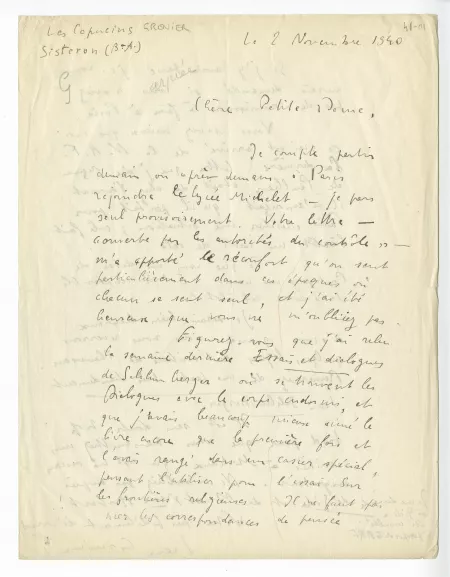 Les Capucins GRENIER
Sisteron (B-A.)
Le 2 Novembre 1940
G
Chère Petite Dame,
Je compte partir
demain ou après demain à Paris
rejoindre le lycée Michelet — je pars
seul provisoirement. Votre lettre —
"ouverte par les autorités du contrôle" —
m'a apporté le réconfort qu'on sent
particulièrement dans ces époques où
chacun se sent seul, et j'ai été
heureux que vous ne m'oubliiez pas.
Figurez-vous que j'ai relu
la semaine dernière Essais et dialogues
de Schlumberger où se trouvent les
Dialogues avec le corps endormi, et
que j'avais beaucoup mieux aimé le
livre encore que la première fois et
l'avais rangé dans un casier spécial,
pensant l'utiliser pour l'essai Sur
les frontières religieuses. Il ne faut pas
nier les correspondances de pensée